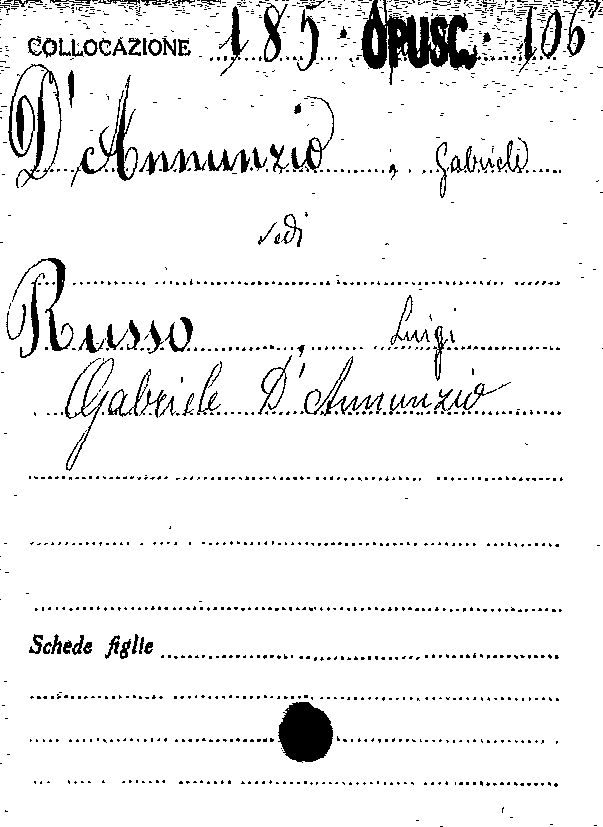 COLLOCAZIONE 185. OPUSC. 106
D'Annunzio, Gabriele
vedi
Russo, Luigi
Gabriele D'Annunzio
Schede figlie